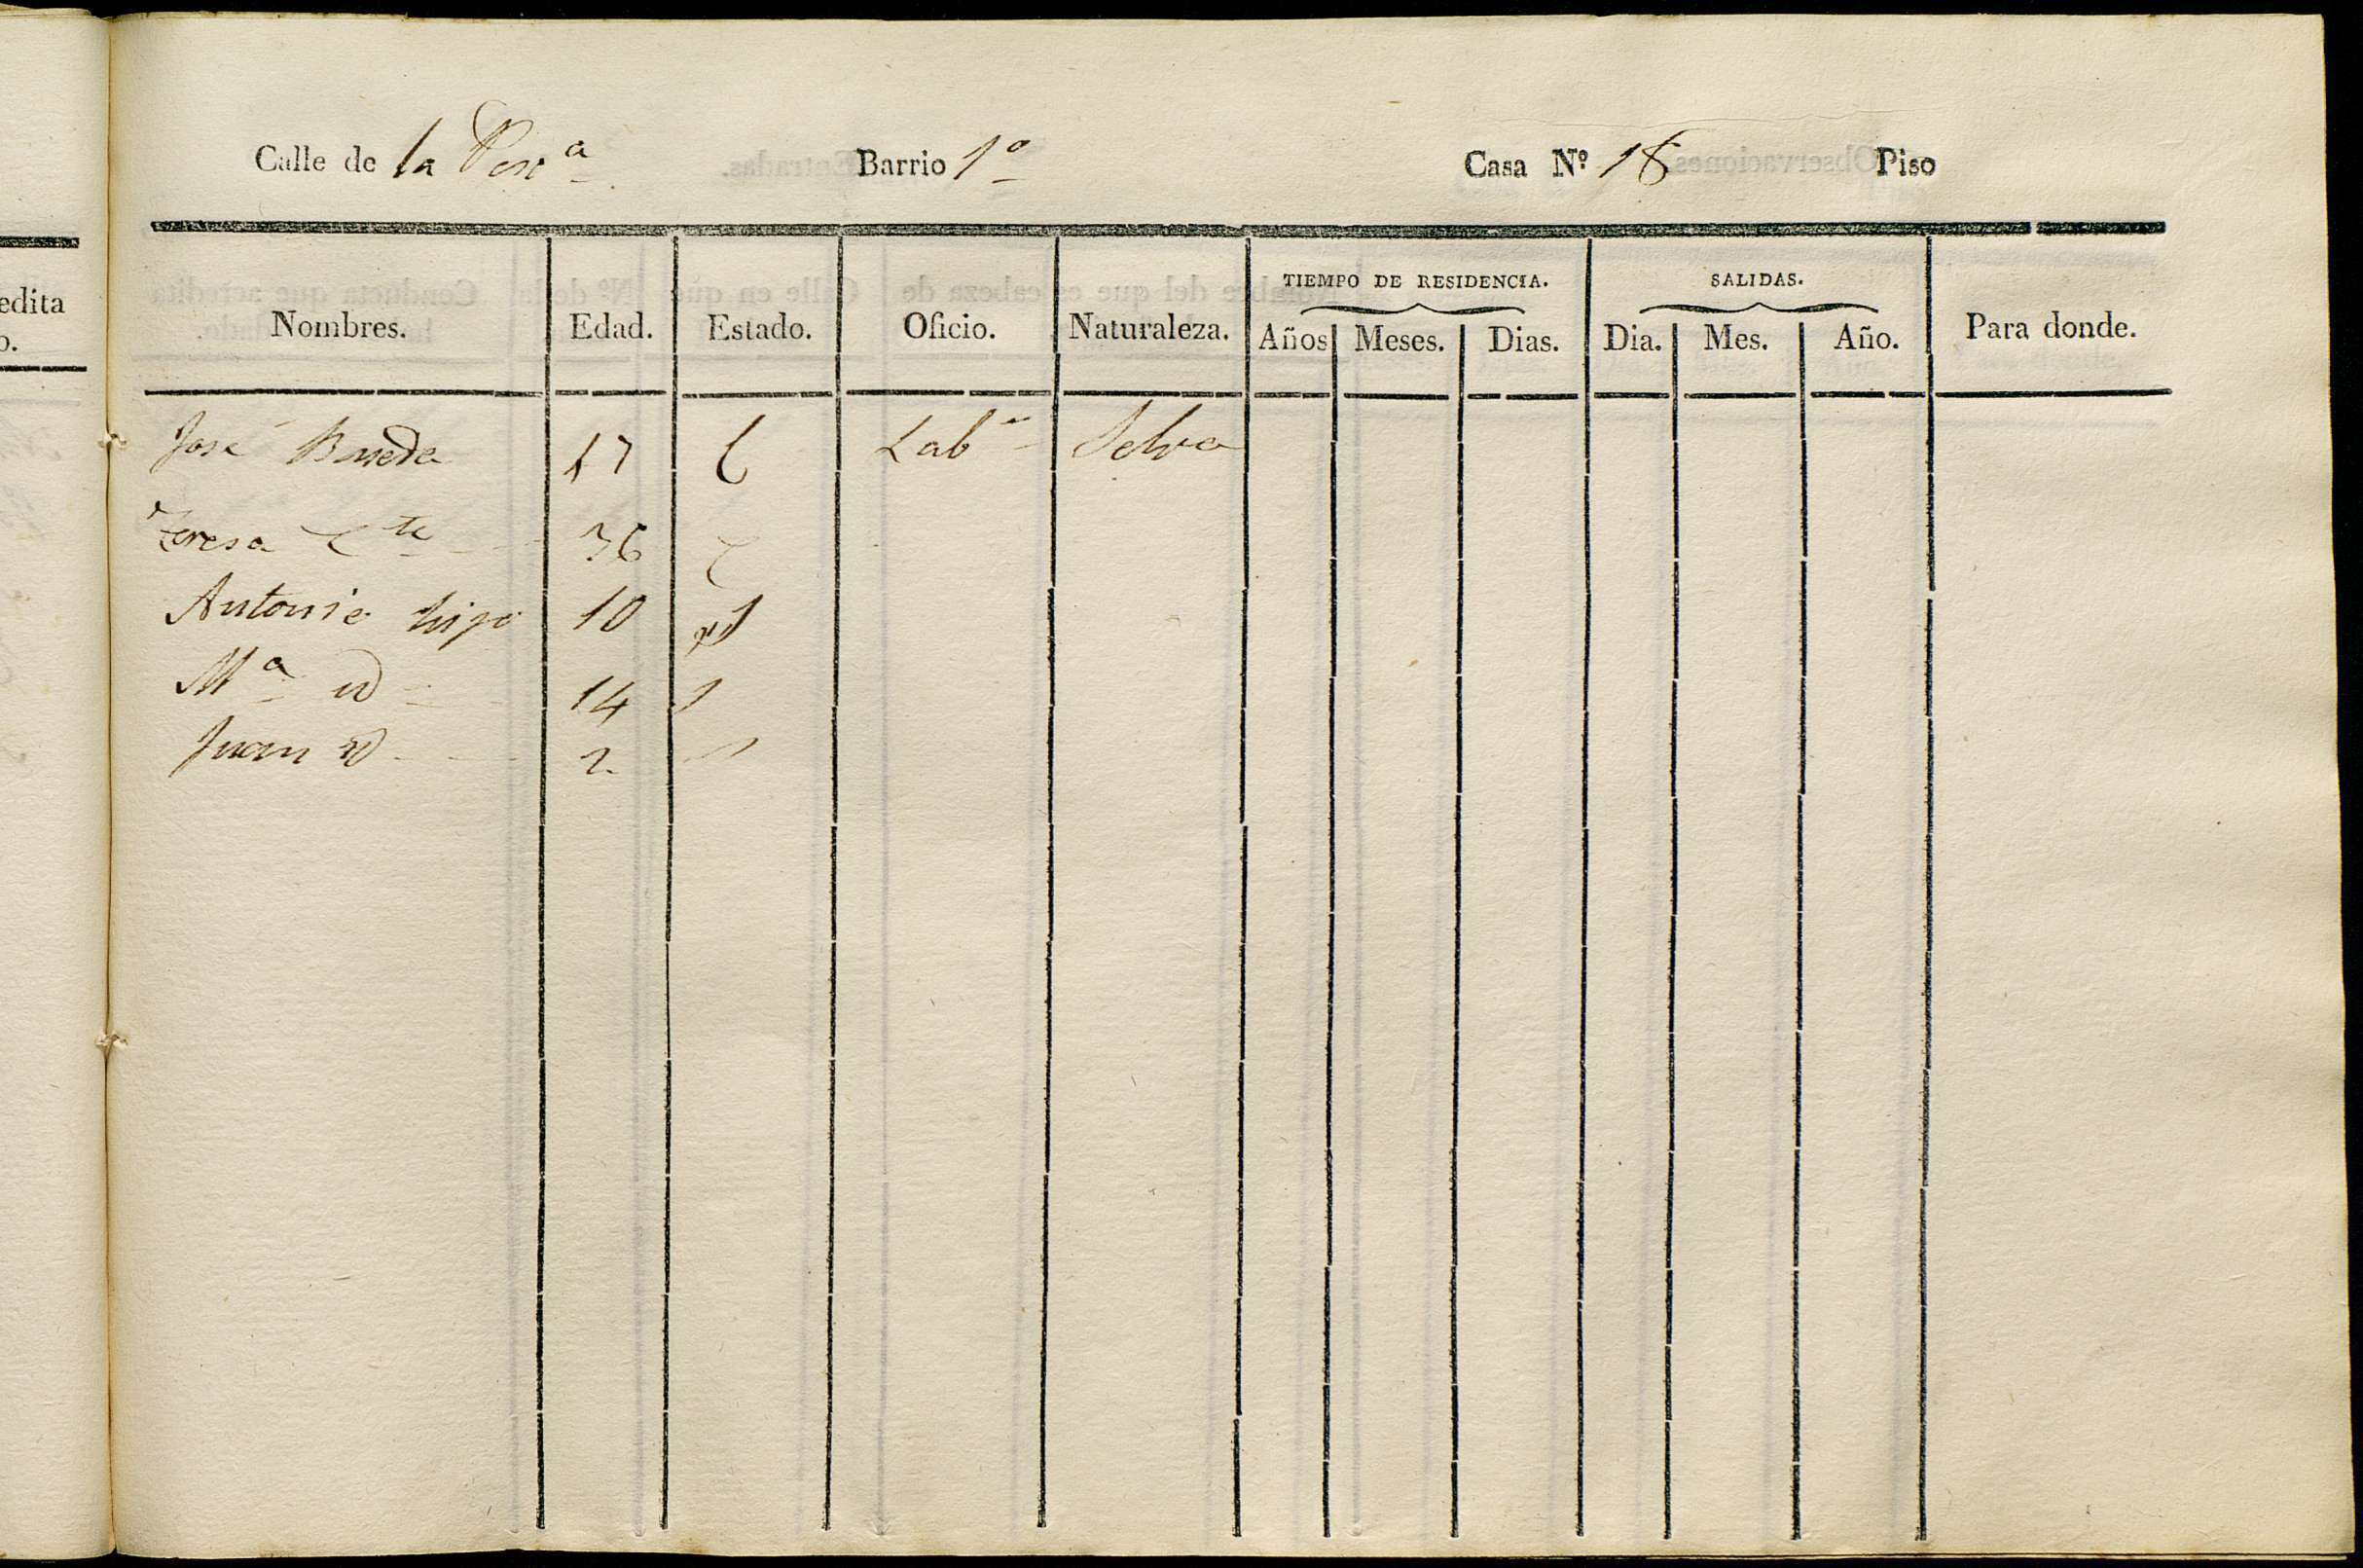 edita
o.
Calle de la Pesc^a Barrio 1º Casa Nº 18 Piso
TIEMPO DE RESIDENCIA. SALIDAS.
Nombres. Edad. Estado. Oficio. Naturaleza. Años Meses. Dias. Dia. Mes. Año. Para donde.
José 47 C Lab^r Selva
Teresa 36 C
Antonio hijo 10 S
M^a id 14 S
Juan id 2